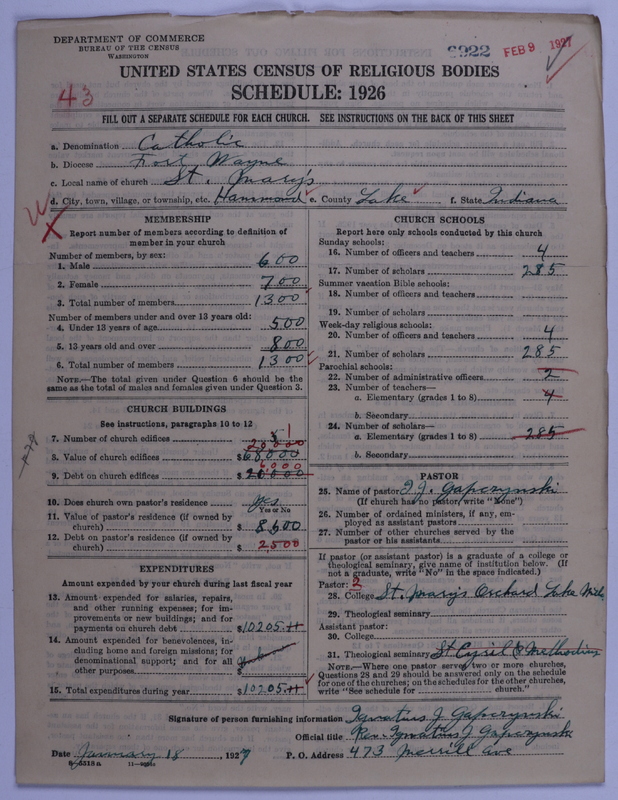 DEPARTMENT OF COMMERCE
BUREAU OF THE CENSUS
WASHINGTON
6922 FEB 9 1927
UNITED STATES CENSUS OF RELIGIOUS BODIES
SCHEDULE: 1926
43
FILL OUT A SEPARATE SCHEDULE FOR EACH CHURCH. SEE INSTRUCTIONS ON THE BACK OF THIS SHEET
a. Denomination Catholic
b. Diocese Fort Wayne
c. Local name of church St. Mary's
d. City, town, village, or township, etc. Hammond e. County Lake f. State Indiana
MEMBERSHIP
Report number of members according to definition of
member in your church
Number of members, by sex:
1. Male 600
2. Female 700
3. Total number of members 1300
Number of members under and over 13 years old:
4. Under 13 years of age 500
5. 13 years old and over 800
6. Total number of members 1300
NOTE.—The total given under Question 6 should be
same as the total of males and females given under Question 3.
CHURCH BUILDINGS
See instructions, paragraphs 10 to 12
7. Number of church edifices 1
20,000
8. Value of church edifices $68000
6,000
9. Debt on church edifices $20000
10. Does church own pastor's residence Yes
Yes or No
11. Value of pastor's residence (if owned by
church) $ 8500
12. Debt on pastor's residence (if owned by
church) $ 2500
EXPENDITURES
Amount expended by your church during last fiscal year
13. Amount expended for salaries, repairs,
and other running expenses; for im-
provements or new buildings; and for
payments on church debt $10205.11
14. Amount expended for benevolences, in-
cluding home and foreign missions; for
denominational support; and for all
other purposes $
15. Total expenditures during year $10205.11
CHURCH SCHOOLS
Report here only schools conducted by this church
Sunday schools:
16. Number of officers and teachers 4
17. Number of scholars 285
Summer vacation Bible schools:
18. Number of officers and teachers
19. Number of scholars
Week-day religious schools:
20. Number of officers and teachers 4
21. Number of scholars 285
Parochial schools:
22. Number of administrative officers 2
23. Number of teachers—
a. Elementary (grades 1 to 8) 4
b. Secondary
24. Number of scholars—
a. Elementary (grades 1 to 8) 285
b. Secondary
PASTOR
25. Name of pastor I. J. Gapczynski
(If church has no pastor, write "None")
26. Number of ordained ministers, if any, em-
ployed as assistant pastors
27. Number of other churches served by the
pastor or his assistants
If pastor (or assistant pastor) is a graduate of a college or
theological seminary, give name of institution below. (If
not a graduate, write "No" in the space indicated.)
Pastor: 2
28. College St. Mary's Orchard Lake Mich
29. Theological seminary
Assistant pastor:
30. College
31. Theological seminary St Cyril & Methodius
NOTE.—Where one pastor serves two or more churches,
Questions 28 and 29 should be answered only on the schedule
for one of the churches; on the schedules for the other churches,
write "See schedule for church."
Signature of person furnishing information Ignatius J. Gapczynski
Official title Rev. Ignatius J. Gapczynski
Date January 18, 1927 P. O. Address 473 Merrill ave
8-5518a 11—